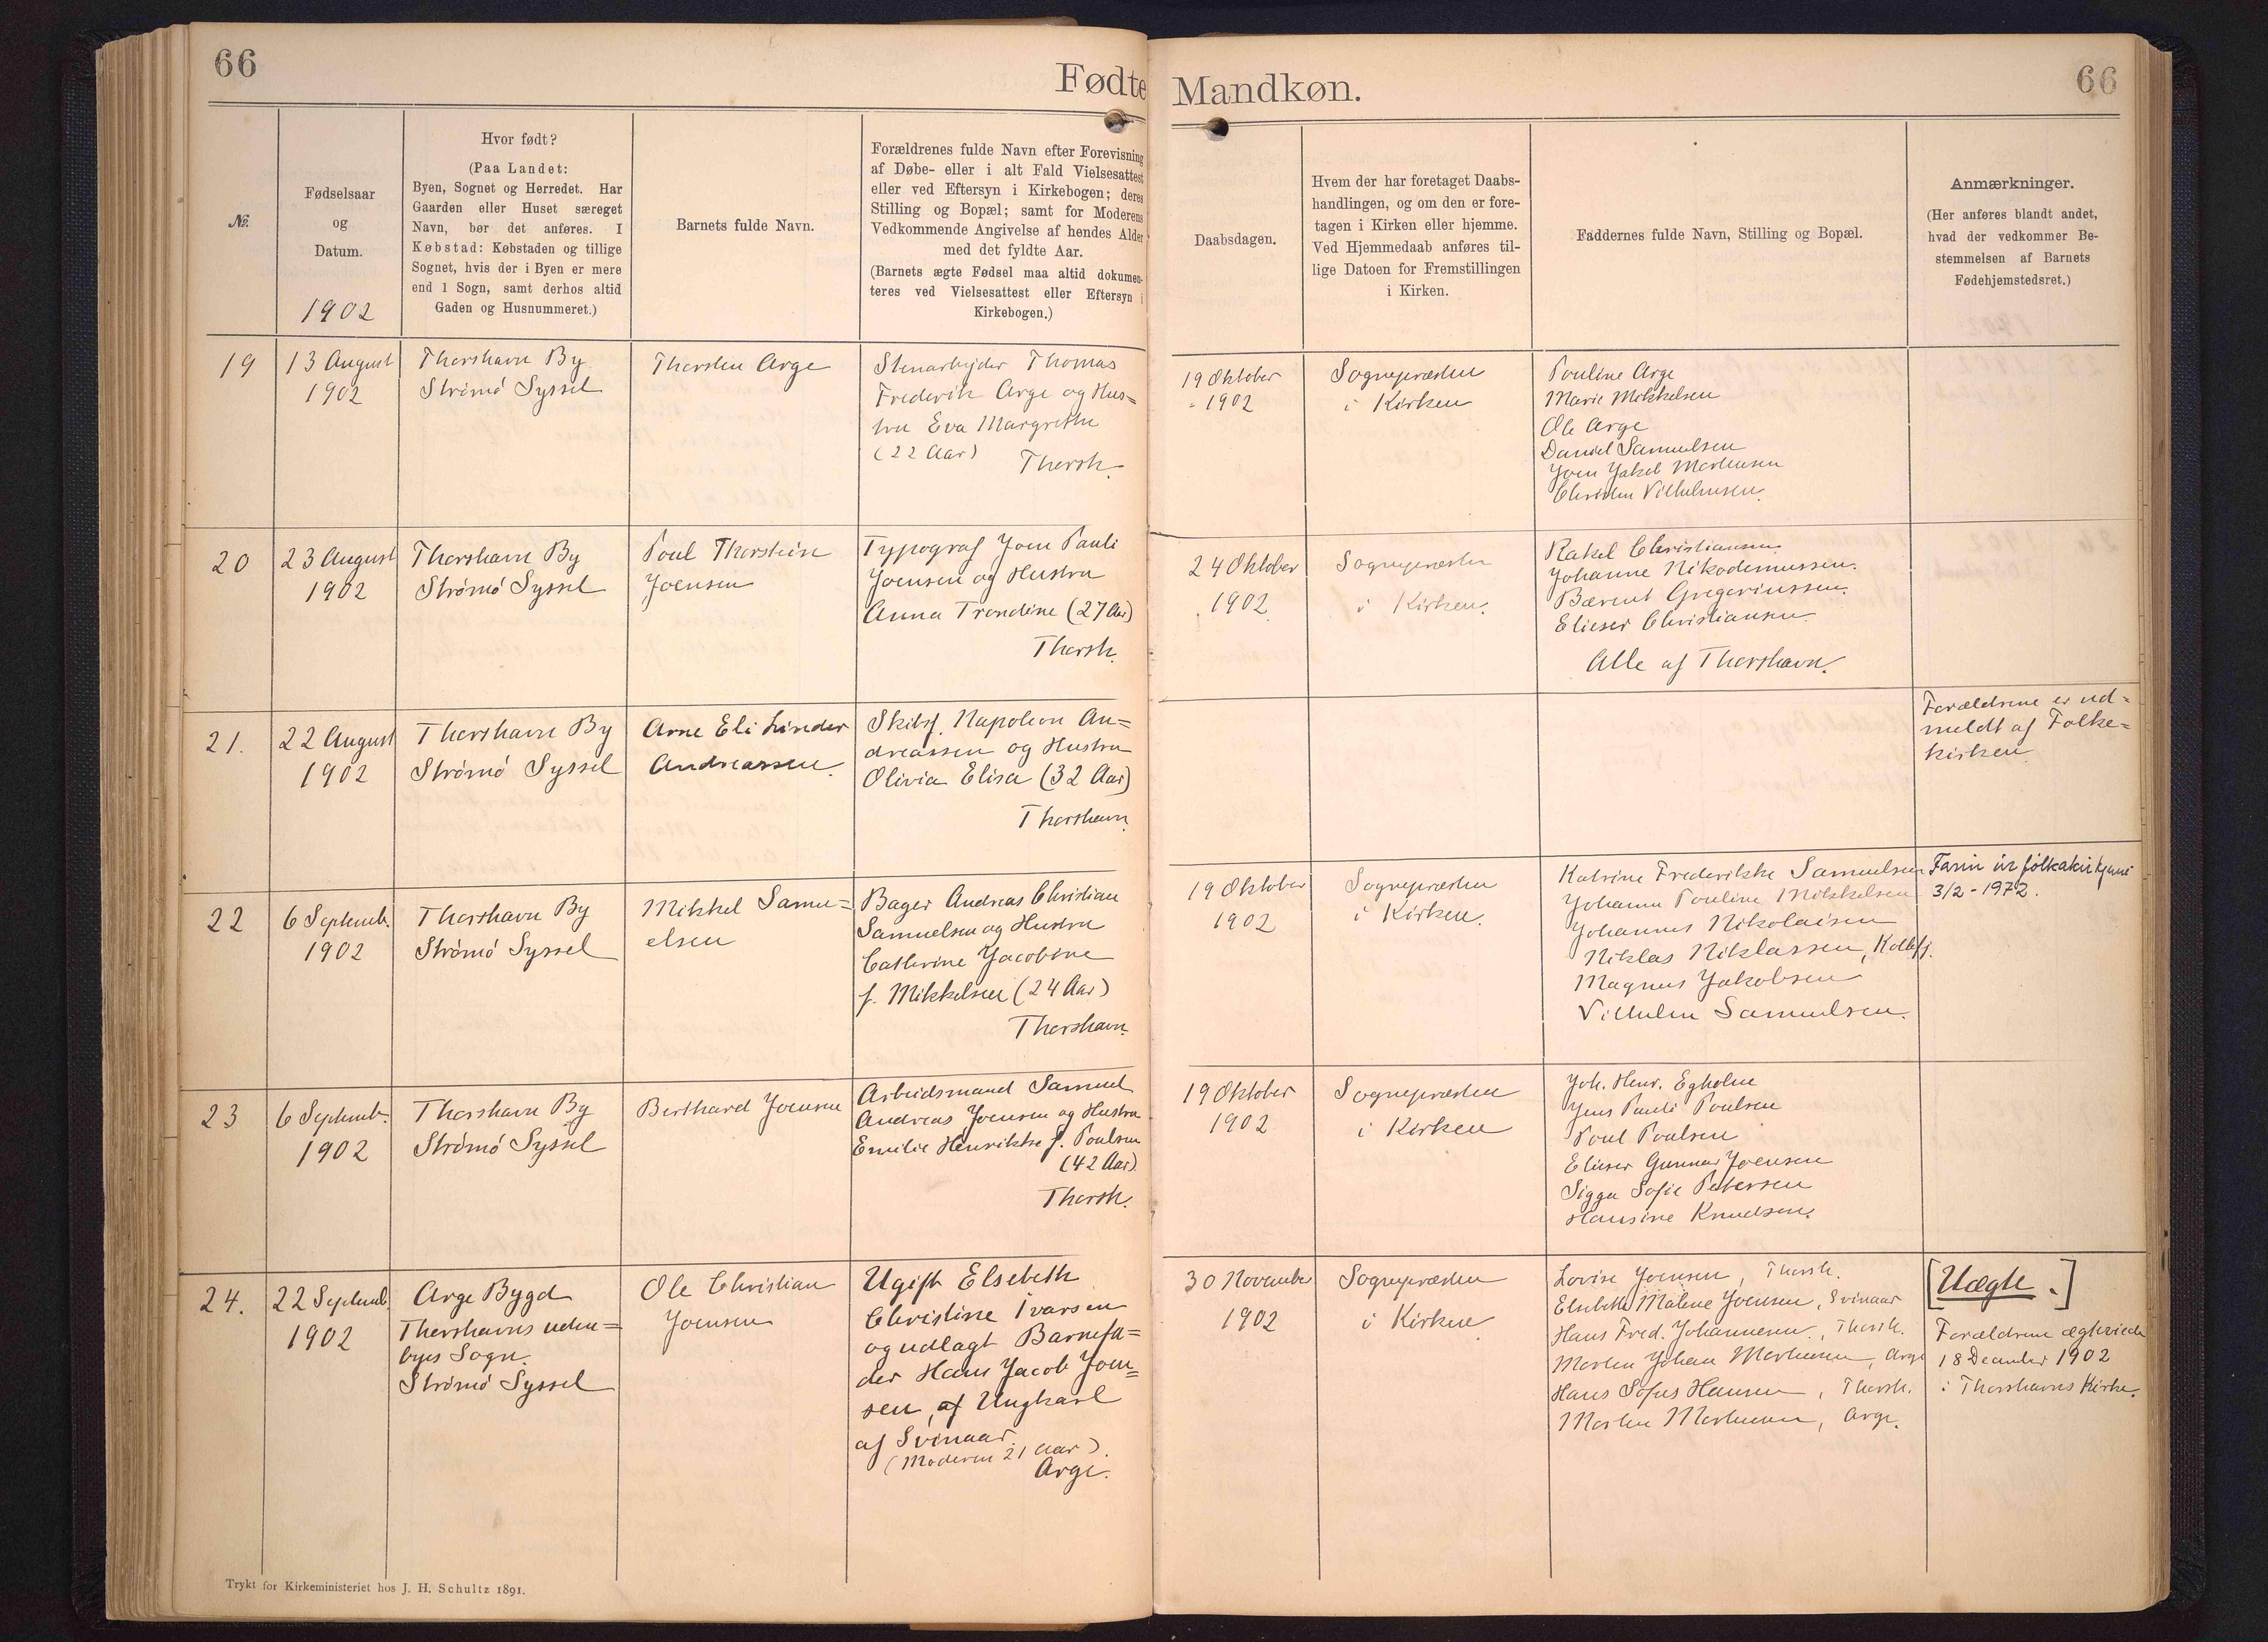 66
Fødte
Mandkøn.
66
№.
Fødselsaar
og
Datum.
1902
Hvor født?
(Paa Landet:
Byen, Sognet og Herredet. Har
Gaarden eller Huset særeget
Navn, bør det anføres. I
Købstad: Købstaden og tillige
Sognet, hvis der i Byen er mere
end 1 Sogn, samt derhos altid
Gaden og Husnummeret.)
Barnets fulde Navn.
Forældrenes fulde Navn efter Forevisning
af Døbe- eller i alt Fald Vielsesattest
eller ved Eftersyn i Kirkebogen; deres
Stilling og Bopæl; samt for Moderens
Vedkommende Angivelse af hendes Alder
med det fyldte Aar.
(Barnets ægte Fødsel maa altid dokumen-
teres ved Vielsesattest eller Eftersyn i
Kirkebogen.)
Daabsdagen.
Hvem der har foretaget Daabs-
handlingen, og om den er fore-
tagen i Kirken eller hjemme.
Ved Hjemmedaab anføres til-
lige Datoen for Fremstillingen
i Kirken.
Faddernes fulde Navn, Stilling og Bopæl.
Anmærkninger.
(Her anføres blandt andet,
hvad der vedkommer Be-
stemmelsen af Barnets
Fødehjemstedsret.)
19
13 August
1902
Thorshavn By
Strømø Syssel
Thorsten Arge
Stenarbejder Thomas
Frederik Arge og Hus=
tru Eva Margrethe
(22 Aar)
Thorsh.
19 Oktober
1902
Sognepræsten
i Kirken
Pouline Arge
Marie Mikkelsen
Ole Arge
Daniel Samuelsen
Joen Jakob Mortensen
Christen Vilhelmsen.
20
23 August
1902
Thorshavn By
Strømø Syssel
Poul Thorstein
Joensen
Typograf Joen Pauli
Joensen og Hustru
Anna Trondine (27 Aar)
Thorsh.
24 Oktober
1902.
Sognepræsten
i Kirken.
Rakel Christiansen.
Johanne Nikodemussen.
Bærent Gregoriussen.
Elieser Christiansen.
Alle af Thorshavn.
21.
22 August
1902
Thorshavn By
Strømø Syssel
Arne Eli Linder
Andreassen.
Skibsf. Napoleon An=
dreassen og Hustru
Olivia Elisa (32 Aar)
Thorshavn.
Forældrene er ud=
meldt af Folke=
kirken.
22
6 Septemb.
1902
Thorshavn By
Strømø Syssel
Mikkel Samu=
elsen
Bager Andreas Christian
Samuelsen og Hustru
Cathrine Jacobine
f. Mikkelsen (24 Aar)
Thorshavn.
19 Oktober
1902
Sognepræsten
i Kirken.
Katrine Frederikke Samuelsen
Johanne Pouline Mikkelsen
Johannes Nikolaisen
Niklas Niklassen, Kollefj.
Magnus Jakobsen
Vilhelm Samuelsen.
Farin úr fólkakirkjuni
3/2 - 1972.
23
6 Septemb.
1902
Thorshavn By
Strømø Syssel
Berthard Joensen
Arbeidsmand Samuel
Andreas Joensen og Hustru
Emilie Henrikke f. Poulsen
(42 Aar).
Thorsh.
19 Oktober
1902
Sognepræsten
i Kirken
Joh. Henr. Egholm
Jens Pauli Poulsen
Poul Poulsen
Elieser Gunnar Joensen
Sigga Sofie Petersen
Hansine Knudsen.
24.
22 Septemb.
1902
Arge Bygd
Thorshavns uden=
byes Sogn.
Strømø Syssel
Ole Christian
Joensen
Ugift Elsebeth
Christine Ivarsen
og udlagt Barnefa=
der Hans Jacob Joen=
sen, af Ungkarl
af Svinaar.
(Moderen 21 Aar).
Arge.
30 November
1902
Sognepræsten
i Kirken
Lovise Joensen, Thorsh.
Elsebeth Malene Joensen, Svinaar
Hans Fred. Johannesen., Thorsh.
Morten Johan Mortensen, Arge
Hans Sofus Hansen, Thorsh.
Morten Mortensen, Arge.
[Uægte.]
Forældrene ægteviede
18 December 1902
i Thorshavns Kirke.
Trykt for Kirkeministeriet hos J. H. Schultz 1891.